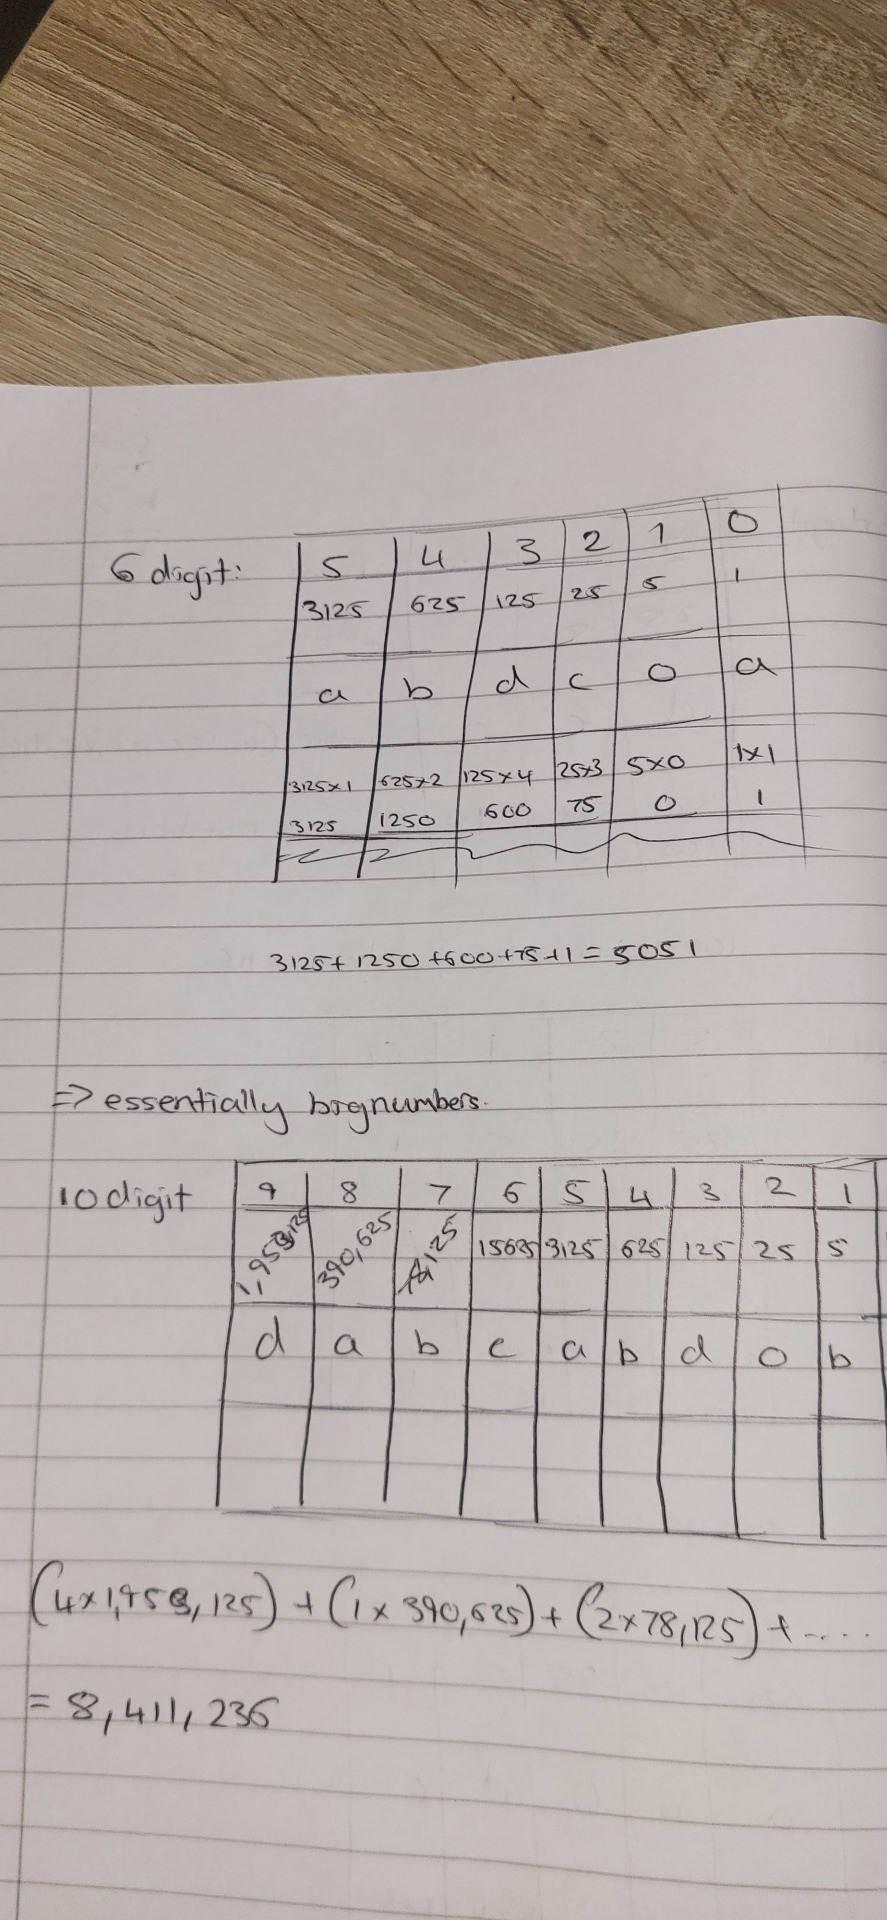 6 digit: 5 4 3 2 1 0
3125 625 125 25 5 1
a b d c 0 a
3125x1 625x2 125x4 25x3 5x0 1x1
3125 1250 600 75 0 1
3125+ 1250 +600+75+1 = 5051
=> essentially bignumbers.
10 digit 9 8 7 6 5 4 3 2 1
390,625 15625 3125 625 125 25 5
d a b c a b d 0 b
(4x1,953,125) + (1 x 390,625) + (2x78,125) + ....
= 8,411,236